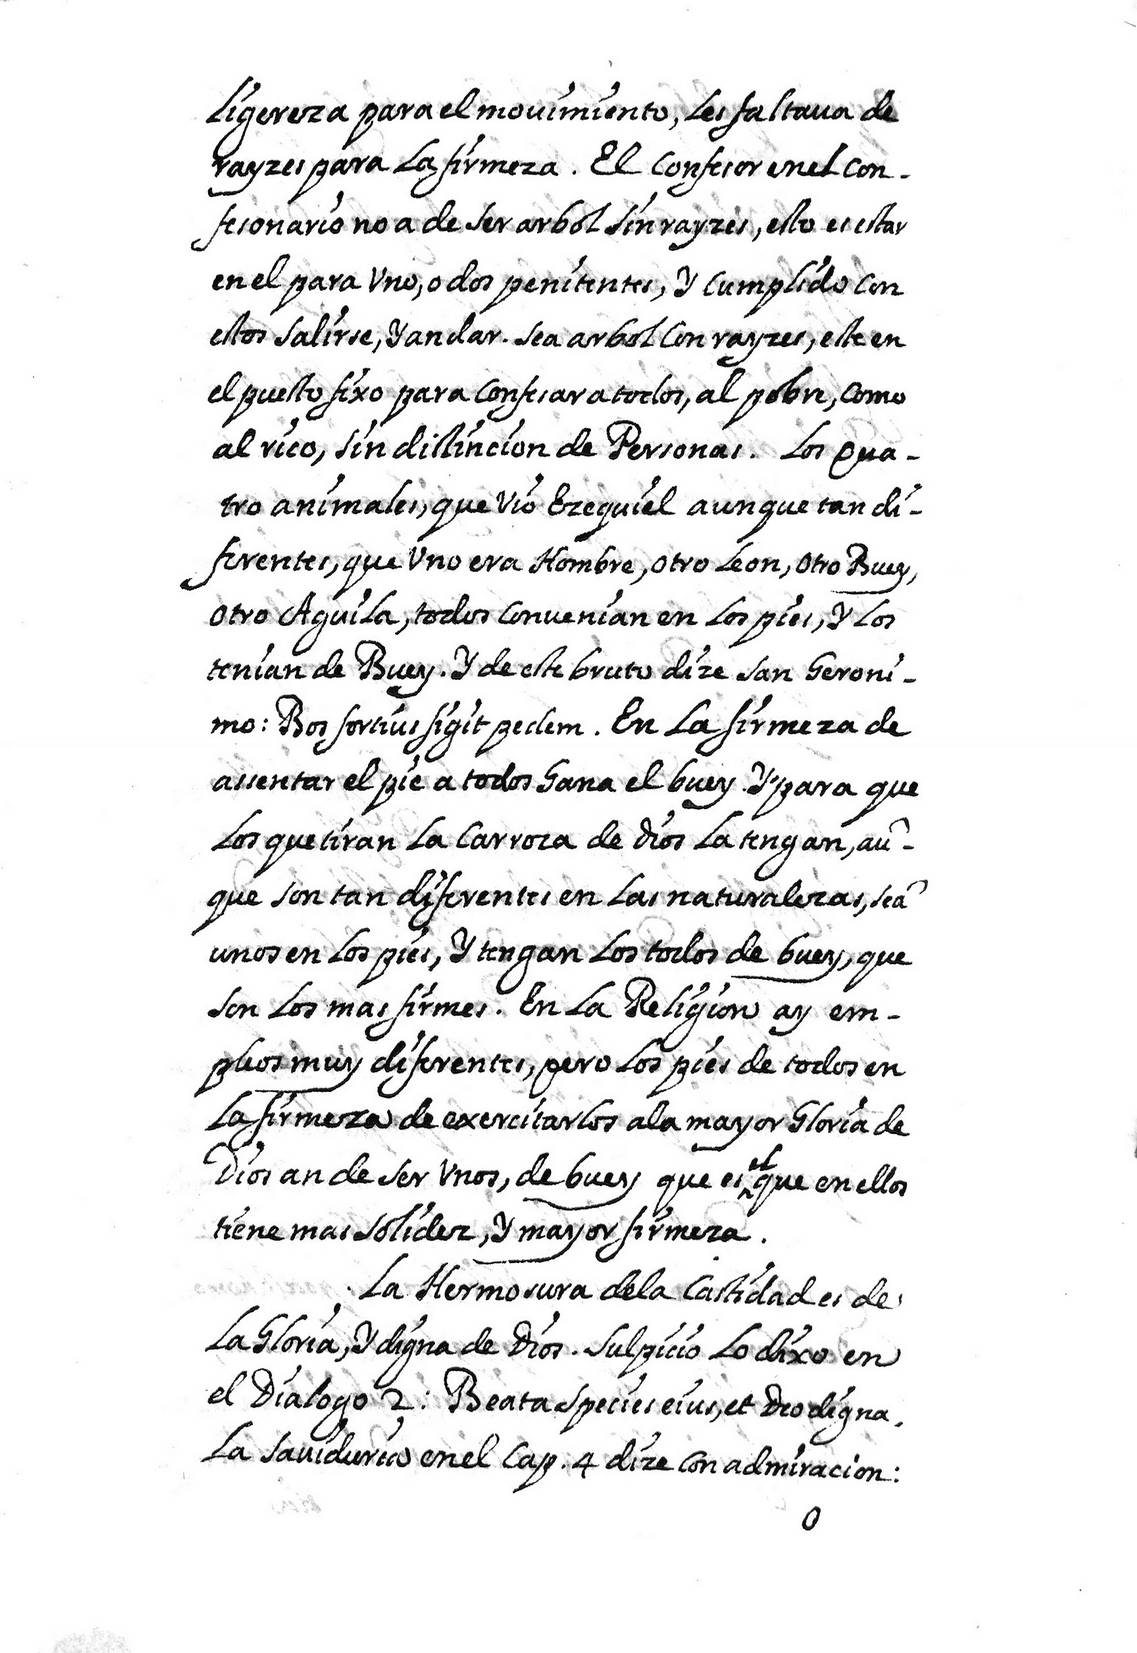 ligereza para el movimiento, les faltaua de
rayzes para la firmeza. El Confesor en el Con-
fesionario no a de ser arbol sin rayzes, esto es estar
en el para vno, o dos penitentes, Y cumplido con
estos salirse, Y andar. sea arbol con rayzes, este en
el puesto fixo para confesar a todos, al pobre, como
al rico, sin distincion de Personas. Los qua-
tro animales, que vio Ezequiel aunque tan di-
ferentes, que vno era Hombre, otro Leon, otro Buey,
otro Aguila, todos conuenian en los pies, Y los
tenian de Buey. Y de este bruto dize san Geroni-
mo: Bos fortius figit pedem. En la firmeza de
assentar el pie a todos gana el buey. Y para que
los que tiran la carroza de Dios la tengan, aũ-
que son tan diferentes en las naturalezas, seã
unos en los pies, Y tengan los todos de buey, que
son los mas firmes. En la Religion ay em-
pleos muy diferentes, pero los pies de todos en
la firmeza de exercitarlos ala mayor Gloria de
Dios an de ser vnos, de buey que es el que en ellos
tiene mas solidez, Y mayor firmeza.
La Hermosura dela Castidad es de
la Gloria, Y digna de Dios. Sulpicio lo dixo en
el Dialogo 2: Beata species eius, et Deo digna.
La sauiduria en el Cap. 4 dize con admiracion:
O